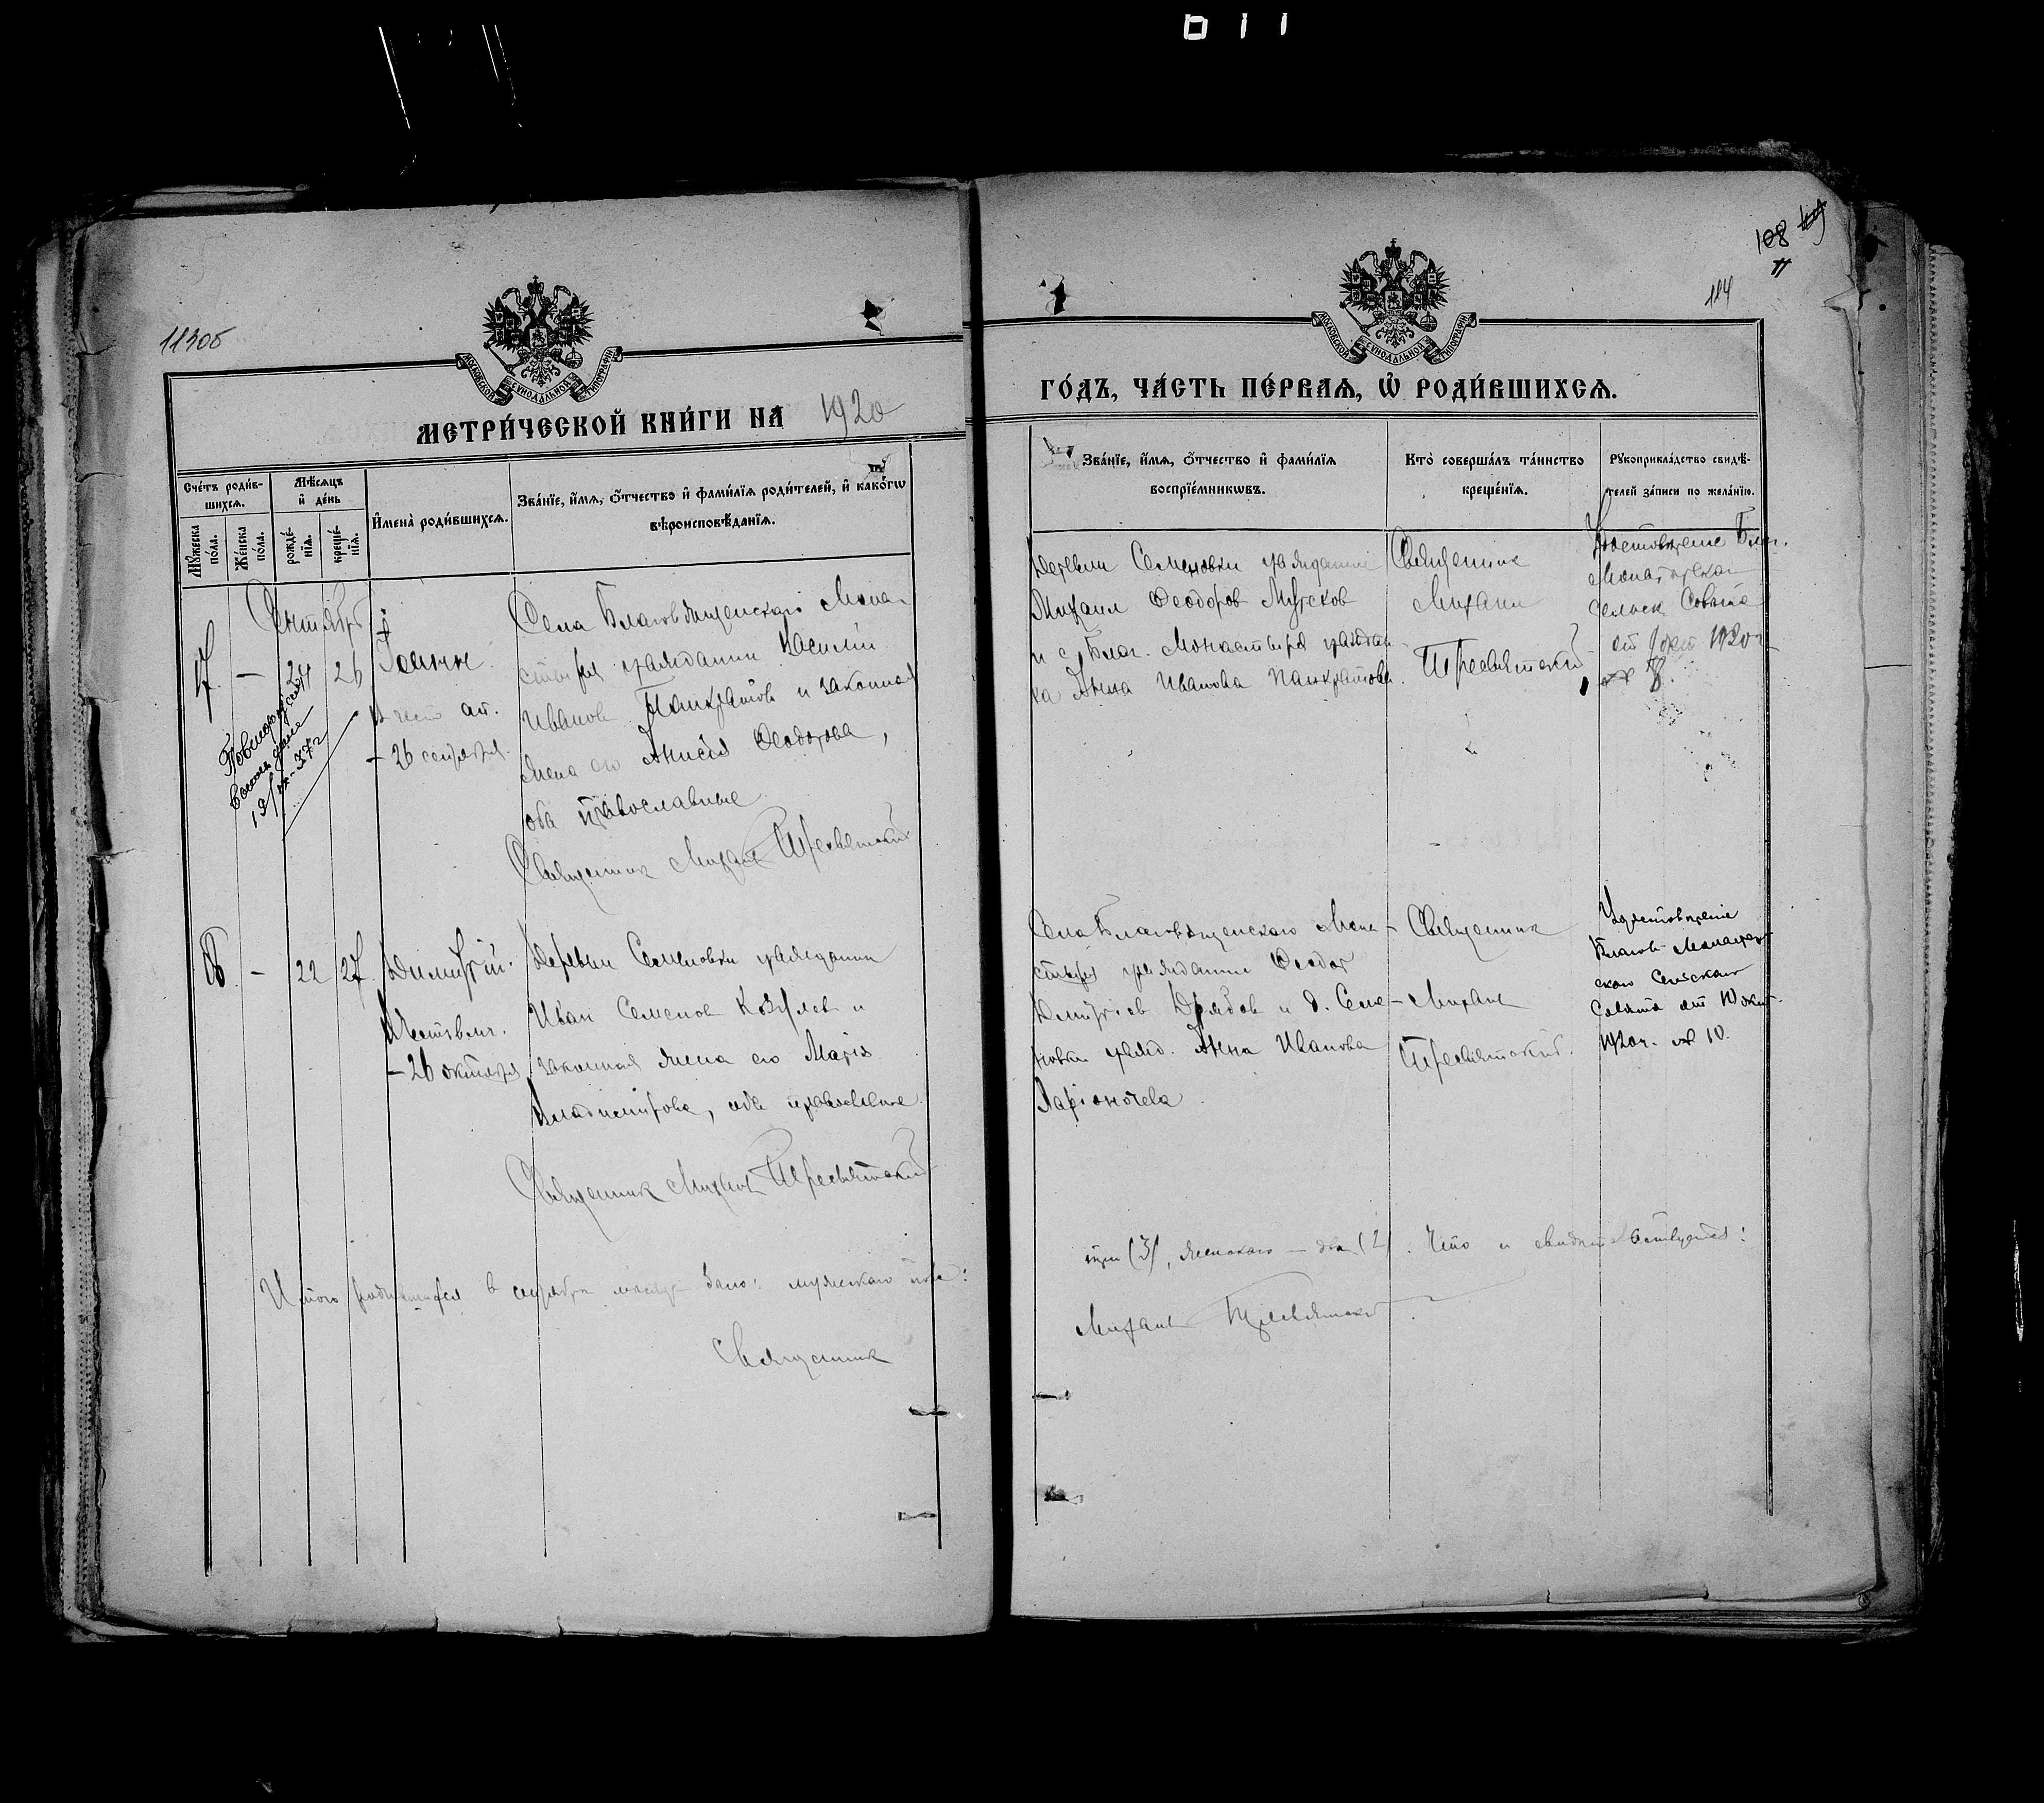 113об
МОСКОВСКОЙ СѴНОДАЛЬНОЙ ТИПОГРАФІИ
МЕТРИ́ЧЕСКОЙ КНИ́ГИ НА 1920
Сче́тъ роди́в-
шихсѧ.
Мѣ́сѧцъ
и҆ де́нь
Мꙋ́жеска
по́ла.
Же́нска
по́ла.
рожде́-
нїѧ.
креще́-
нїѧ.
И҆мена̀ роди́вшихсѧ.
Зва́нїе, и҆́мѧ, ѻ҆́тчество и҆ фами́лїѧ роди́телей, и҆ како́гѡ
вѣроисповѣ́данїѧ.
Сентябрь
7. — 24 26
Іоанн.
в чест ап.
– 26 сентября.
Села Благовѣщенскаго Мона-
стыря гражданин Василій
Иванов Панкратов и законная
жена его Анисія Феодорова,
оба православные
Священник Михаил Пресвятский
8. — 22 27.
Димитрій.
в чест влмч.
– 26 октября.
Деревни Семеновки гражданин
Иван Семенов Козулев и
законная жена его Марія
Владимирова, оба православные.
Священник Михаил Пресвятский
Итого родившихся в сентябре месяце было: мужескаго пола:
Священник
108
114
МОСКОВСКОЙ СѴНОДАЛЬНОЙ ТИПОГРАФІИ
ГО́ДЪ, ЧА́СТЬ ПЕ́РВАѦ, Ѡ҆ РОДИ́ВШИХСѦ.
Зва́нїе, и҆́мѧ, ѻ҆́тчество и҆ фами́лїѧ
воспрїе́мникѡвъ.
Кто̀ соверша́лъ та́инство
креще́нїѧ.
Рꙋкоприкла́дство свидѣ́-
телей за́писи по жела́нїю.
Деревни Семеновки гражданин
Михаил Феодоров
и с. Благ. Монастыря граждан-
ка Анна Иванова Панкратова.
Священник
Михаил
Пресвятский
Удостоверение Благ.
Монастырскаго
сельск Совета
от 9 окт 1920 г
№ 8.
Села Благовѣщенскаго Мона-
стыря гражданин Феодор
Димитріев Дрябов и д. Семе-
новки гражд. Анна Иванова
Ларіонычева
Священник
Михаил
Пресвятский.
Удостоверение
Благов. Монастыр-
скаго Сельскаго
Совета от 10 окт.
1920 г. № 10.
три (3), женскаго – два (2). Что и свидетельствует:
Михаил Пресвятский